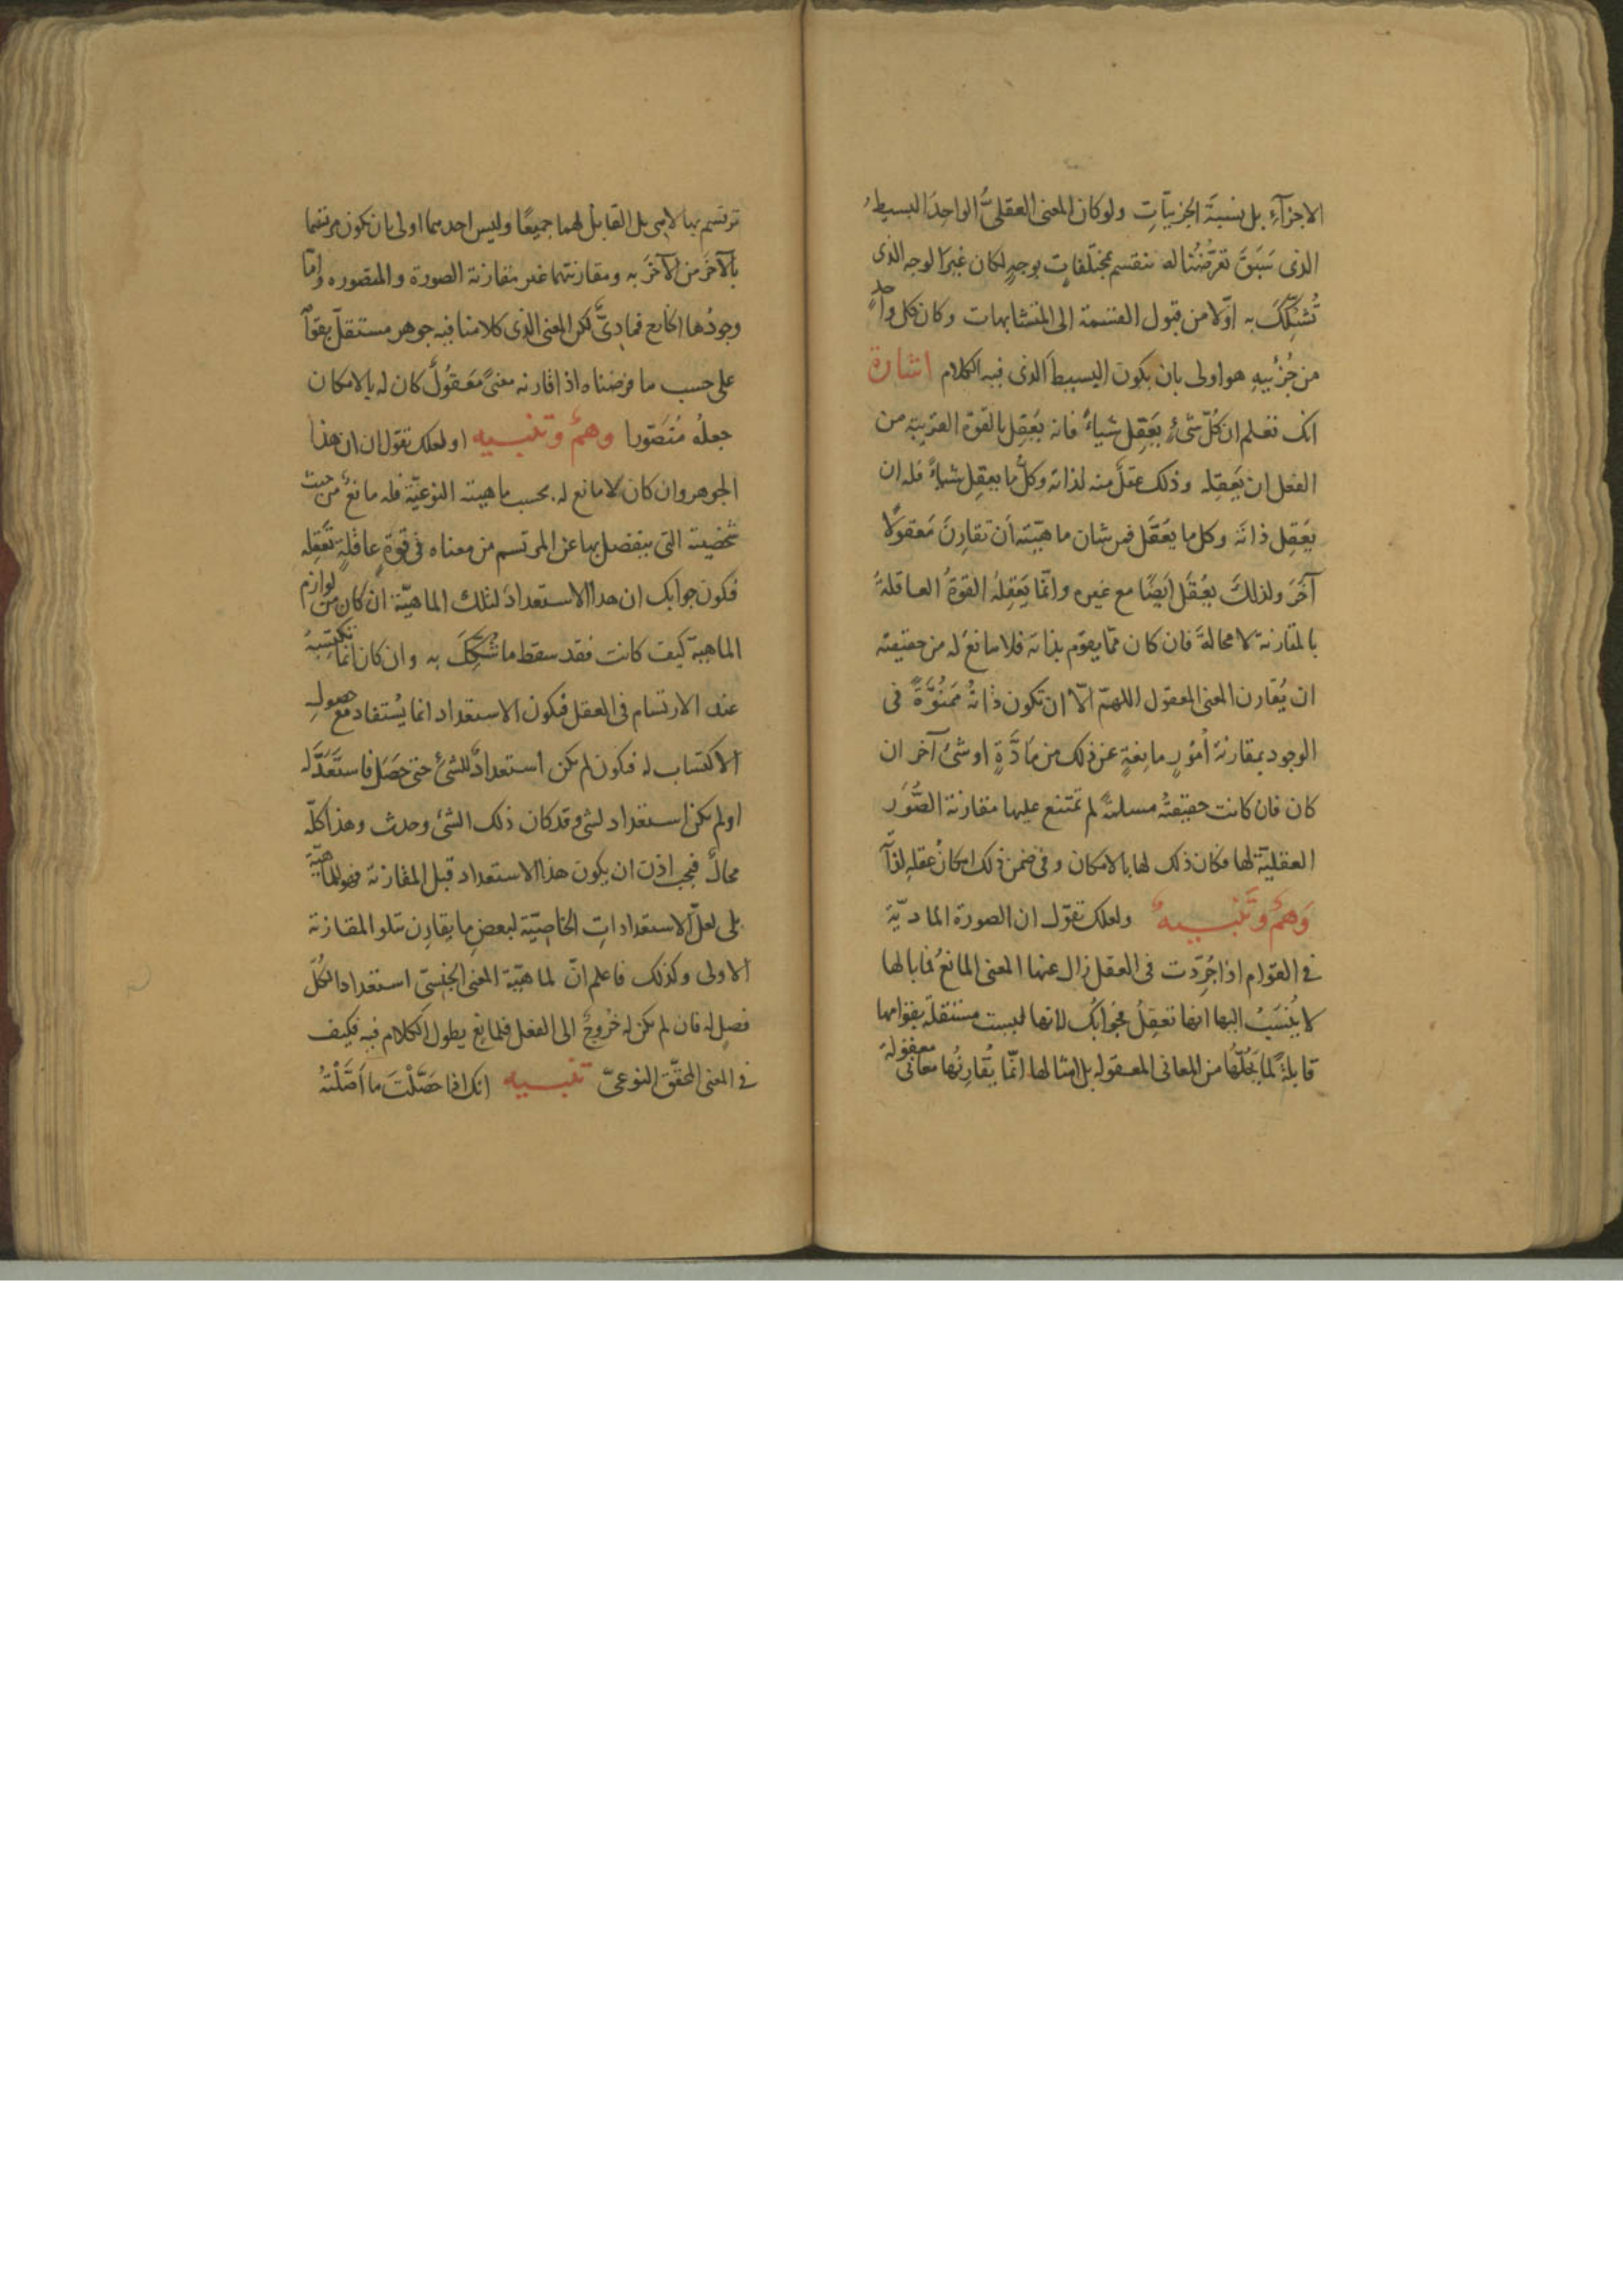 الاجزآءِ بل بنسبة الجزئيّاتِ ولو كان المعنى العقلىُّ الواحِدَ البسيط
الذى سَبَقَ تعرُّضُنا له ينقسم بمختلفاتٍ بوجهٍ لكان غيرَ الوجه الذى
تُشكِّكَ به اوّلا من قبول القسمة الى المتشابهات وكان كل واحدٍ
من جُزْئيهِ هو اولى بان يكون البسيطَ الذى فيه الكلام اشارة
انك تعلم ان كُلّ شئٍ يَعقِل شياءً فانه يَعقِل بالقوّة القريبة من
الفعل ان يَعقِله وذلك عقلٌ منه لذاته وكلُّ ما يعقِل شياءً فله ان
يَعقِل ذاتَه وكل ما يَعقَل فمن شان ماهيّته أن تقارِنَ مَعقولًا
آخَرَ ولذلك يعُقَل ايَضًا مع غيره وانّما يَعقِلهُ القوةُ العاقلةُ
بالمقارنة لا محالةَ فان كان ممّا يقوم بذاته فلا مانعَ له من حقيقته
ان يُقارن المعنى المعقول اللهمّ الّا ان تكون ذاتُهُ مَمنُوَّةً فى
الوجود بمقارنة أمُورٍ مانِعةٍ عن ذلك من مَادَّةٍ او شئٍ آخر ان
كان فان كانت حقيقتُه مسلمةً لم تمتنع عليها مقارنة الصُّوَر
العقليّة لها فكان ذلك لها بالامكان وفى ضمن ذلك امكانُ عقلهِ لذآ
وَهمٌ وتَنبيهٌ ولعلك تقول ان الصورة الماديّة
فى القوام اذا جُرِّدت فى العقل زال عنها المعنى المانعُ فما بالها
لا يُنسَبُ اليها انها تعقِلُ فجوابُك لانها ليست مستقلّة بقوامها
قابلةً لما يَحُلّها من المعانى المعقوله بل امثالها انّما يُقارِنُها معانى معقولة
ترتسم بها لا هى بل القابل لهما جميعًا وليس احدهما اولى بان يكون مرتسما
بالآخَر من الآخَر به ومقارنتهما غير مقارنة الصورة والمتصوره وامّا
وجودُها الخارج فمادىٌّ لكن المعنى الذى كلامنا فيه جوهر مستقلّ بقوآ
على حسب ما فرضناه اذا قارنه معنىً مَعقولٌ كان له بالامكان
جعلهُ مُتَصّورا وهمٌ وتنبيه او لعلك تقول ان ان هذا
الجوهر وان كان لا مانع له بحسب ماهيته النوعيّة فله مانعٌ من حيث
شخصيته التى ينفصل بها عن المرتسم من معناه فى قوّةٍ عاقلةٍ تَعقِله
فكون جوابك ان هذا الاستعدادَ لتلك الماهيّة ان كان من لوازم
الماهية كيف كانت فقد سقط ما شُكِّكَ به وان كان انّما تكتسِبهُ
عند الارتسام فى العقل فيكون الاستعداد انما يُستفاد مع حصولهِ
الاكتساب له فيكون لم يكن استعدادٌ للشئ حتى حَصَل فاستَعَدّ له
او لم يكن استعداد لشئ وقد كان ذلك الشئ وحدث وهذا كلّه
محالٌ فيجب اذن ان يكون هذا الاستعداد قبل المقارنة فهو للماهيّة
بلى لعلّ الاستعداداتِ الخاصيّة لبعضِ ما يقارن تتلو المقارنة
الاولى وكذلك فاعلم انّ لماهيّة المعنى الجنسىّ استعدادا لكلّ
فصلٍ له فان لم يكن له خُروجٌ الى الفعل فلمانعٍ يطول الكلام فيه فكيف
فى المعنى المحقّق النوعىّ تنبيه انك اذا حَصَّلْتَ ما أصَّلْتُهُ